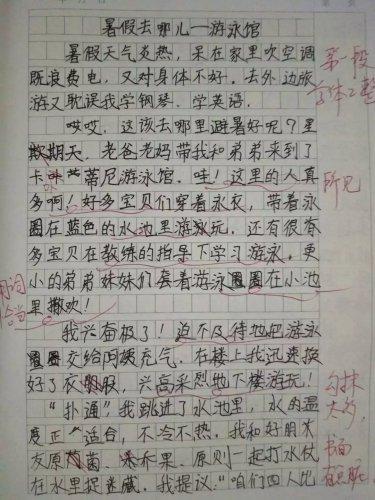 暑假去哪儿—游泳馆
暑假天气炎热，呆在家里吹空调
既浪费电，又对身体不好。去外边旅
游又耽误我学钢琴、学英语。
哎哎，这该去哪里避暑好呢？星
期天，老爸老妈带我和弟弟来到了
卡蒂尼游泳馆。哇！这里的人真
多啊！好多宝贝们穿着泳衣，带着泳
圈在蓝色的水池里游泳玩，还有很有
多宝贝在教练的指导下学习游泳，更
小的弟弟妹妹们套着游泳圈在小池
里撒欢！
我兴奋极了！迫不及待地把游泳
圈交给阿姨充气，在楼上我迅速换
好了衣服，兴高采烈地下楼游玩！
“扑通”我跳进了水池里，水的温
度正适合，不冷不热。我和好朋友
友原菌、乔果、原则一起打水仗
在水里捉迷藏。我提议：“咱们四人比
第一段
字体工整
所见
用词
恰当
勾抹
太多，
书面